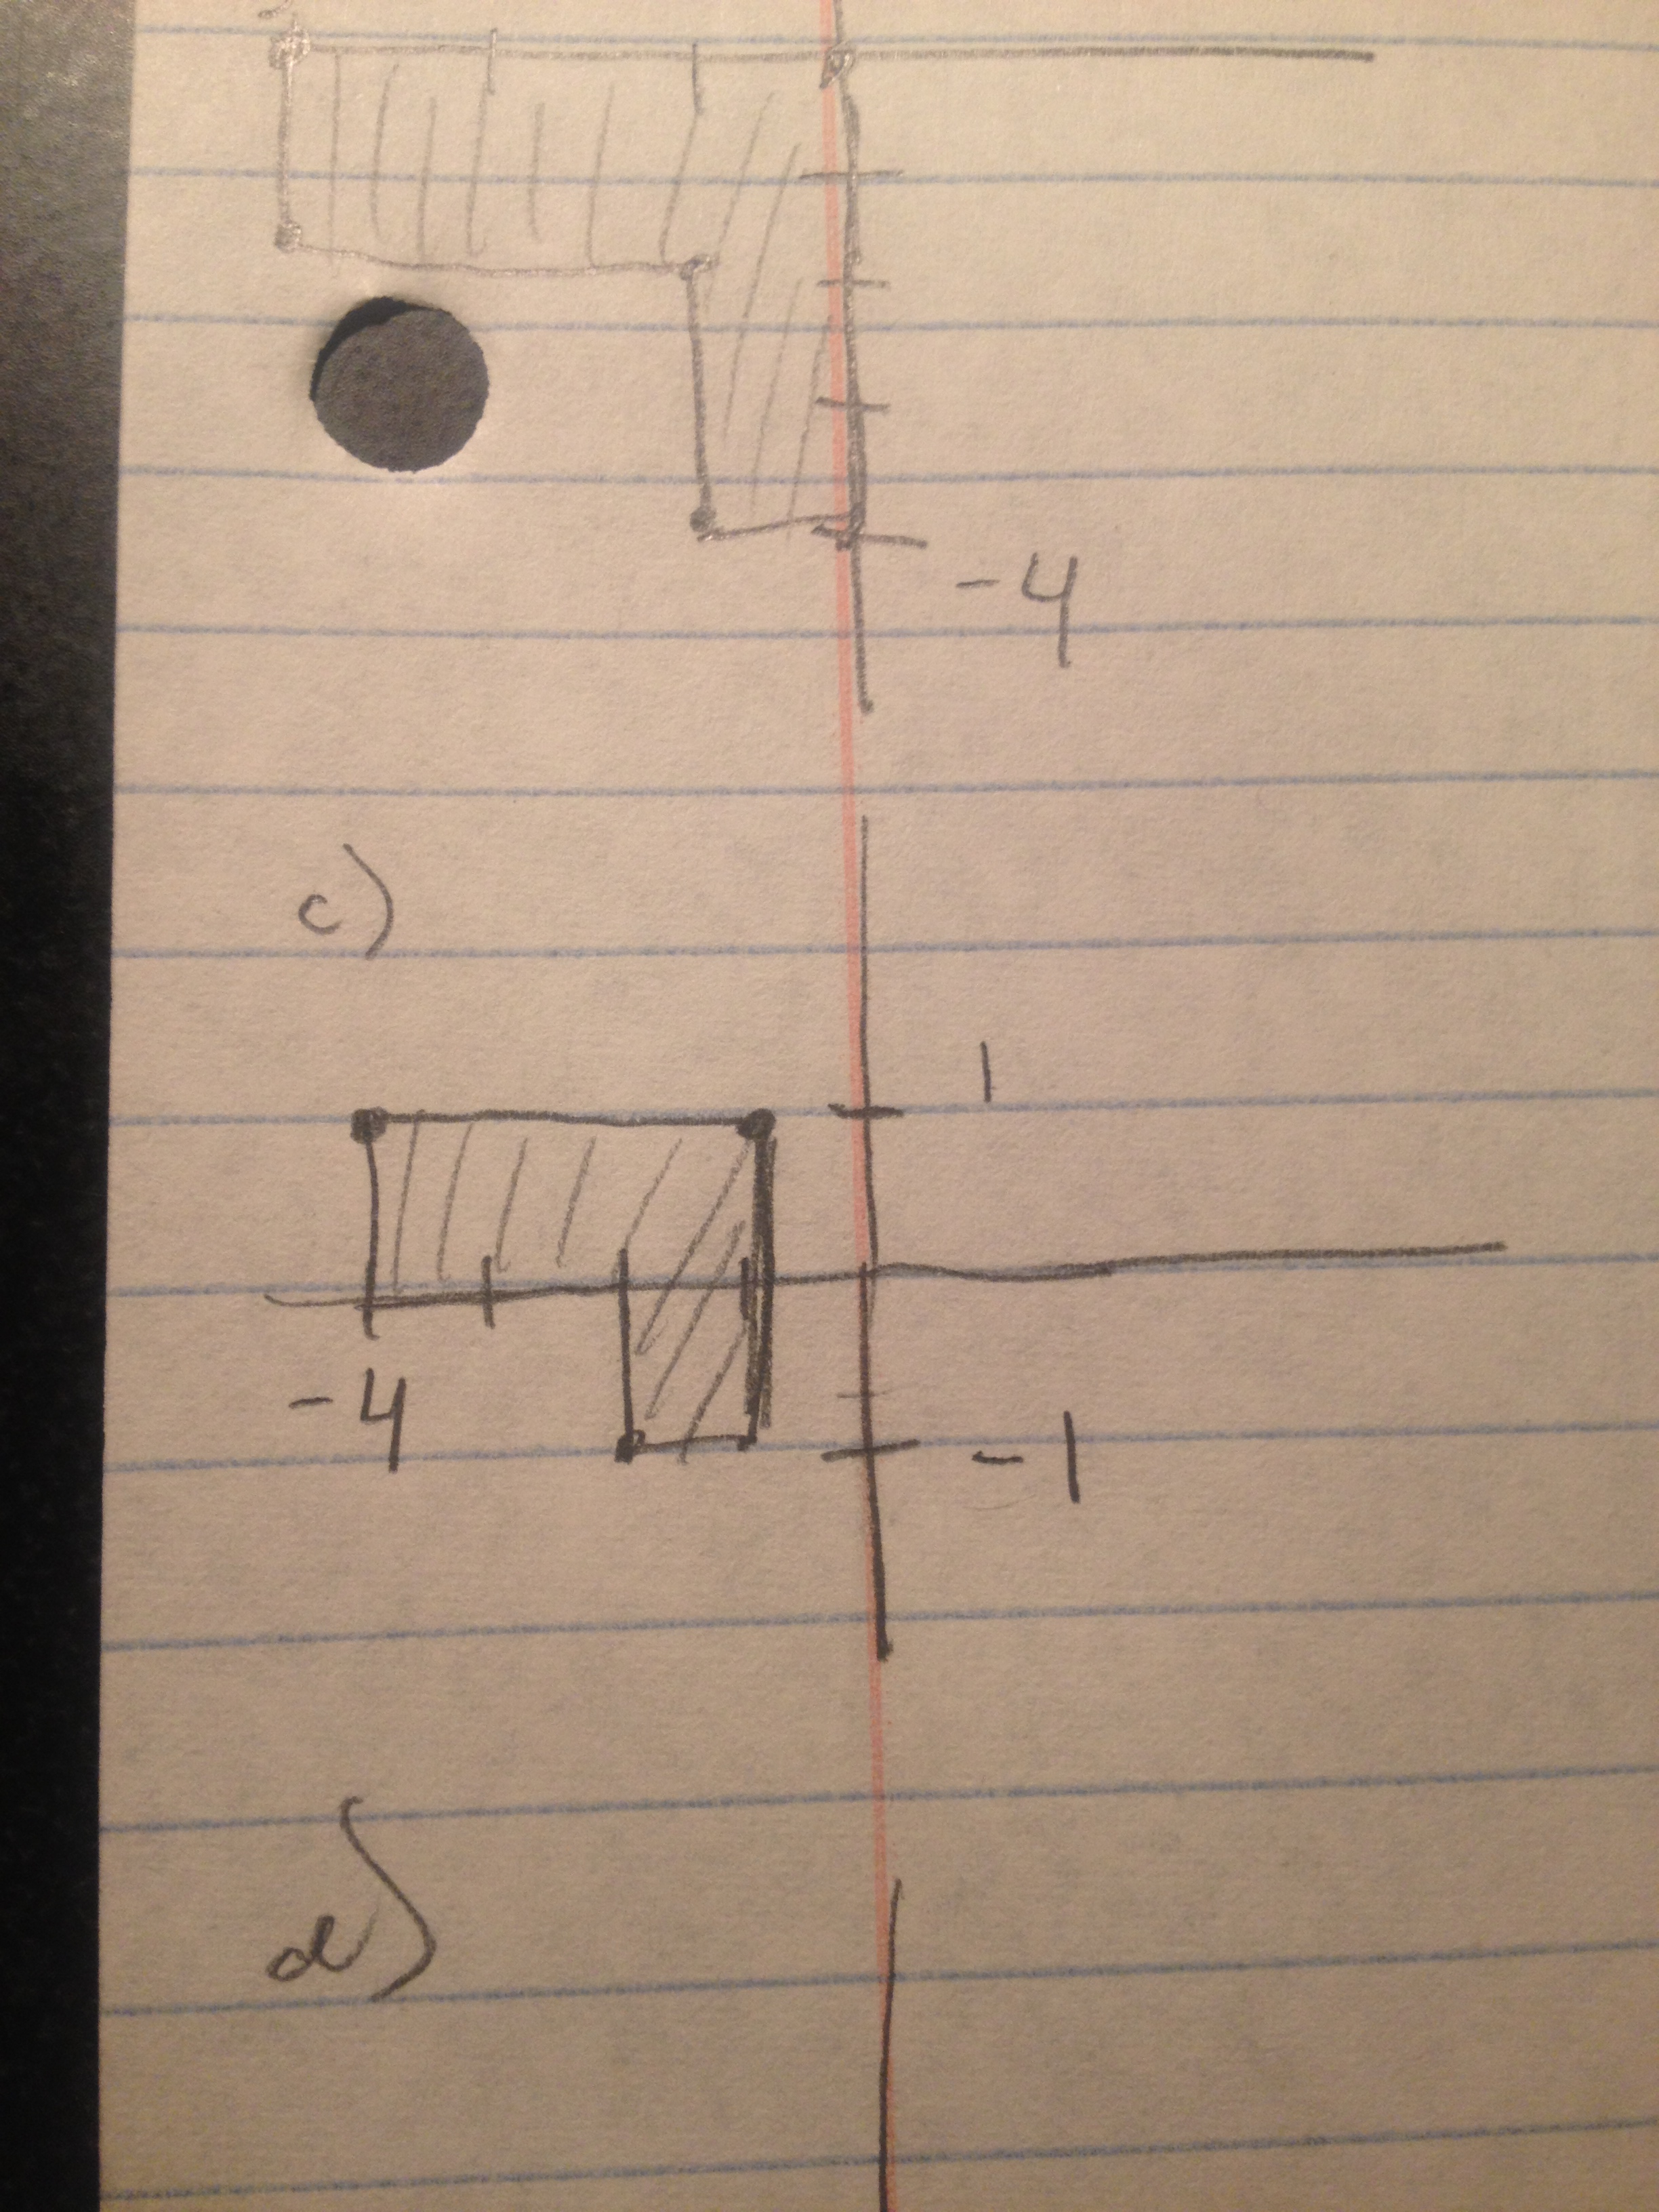 -4
c)
1
-4
-1
d)